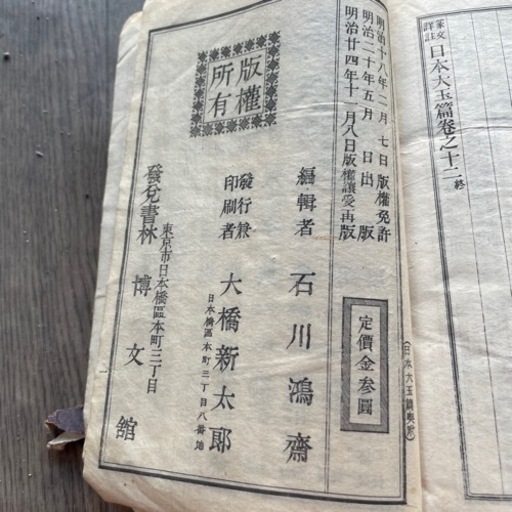 篆文
詳註
日本大玉篇卷之十二終
明治十八年二月七日版權免許
明治二十年五月 日出版
明治廿四年十一月八日版權讓受再版
定價金參圓
編輯者 石川鴻齋
發行兼
印刷者 大橋新太郎
日本橋區本町三丁目八番地
東京市日本橋區本町三丁目
發兌書林 博文館
版權
所有